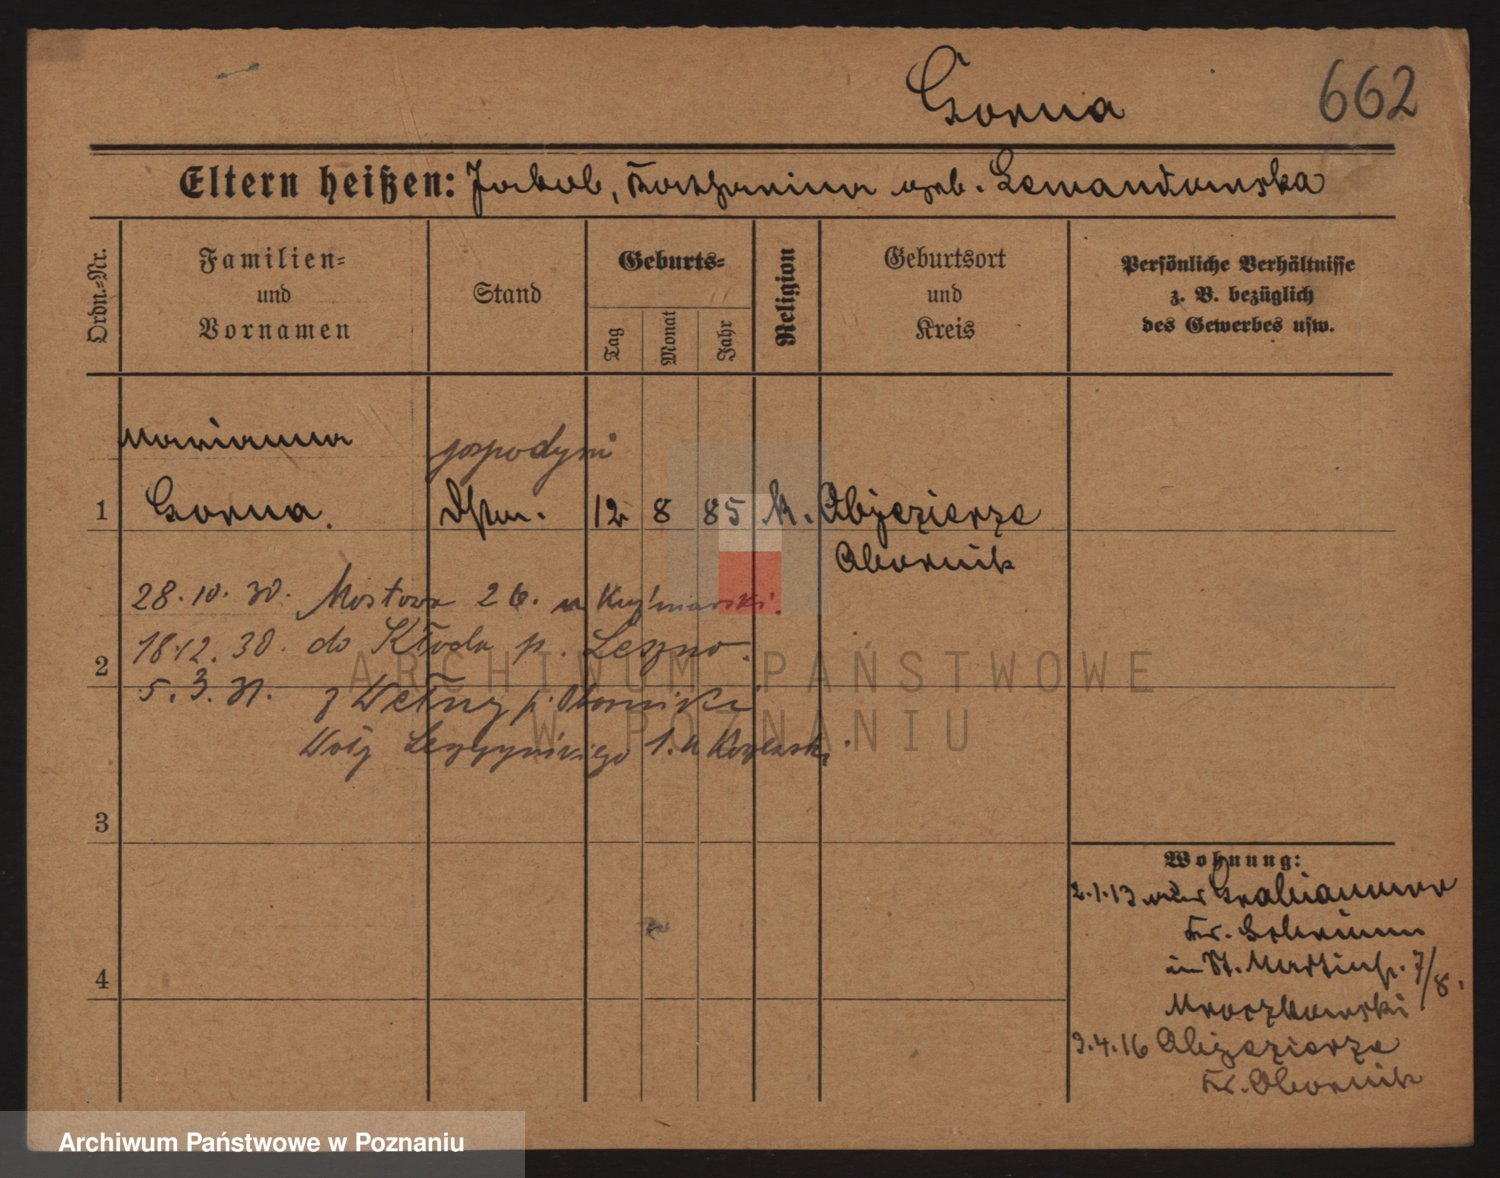 Gorna 662
Eltern heißen: Jakob, Katharina geb. Lewandowska
Ordn.-Nr.
Familien-
und
Vornamen
Stand
Geburts-
Tag
Monat
Jahr
Religion
Geburtsort
und
Kreis
Persönliche Verhältnisse
z. B. bezüglich
des Gewerbes usw.
Marianna
gospodyni
1 Gorna. 12 8 85 k. Objezierze
Obornik
28.10.30. Mostowa 26. u Kuźniarski.
18.12.30. do Kłoda p. Leszno.
2
5.3.31. z Wełny p. Oborniki
1. u
3
4
Wohnung:
2.1.13 aus
Kr. Schrimm
in St. Martinstr. 7/8.
Mroczkowski
3.4.16 Objezierze
Kr. Obornik
ARCHIWUM PAŃSTWOWE
W POZNANIU
Archiwum Państwowe w Poznaniu